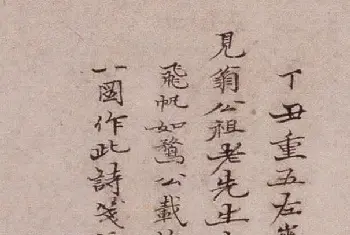 丁丑重五左
見翁公祖老先生
飛帆如鶩公載
一圖作此詩箋